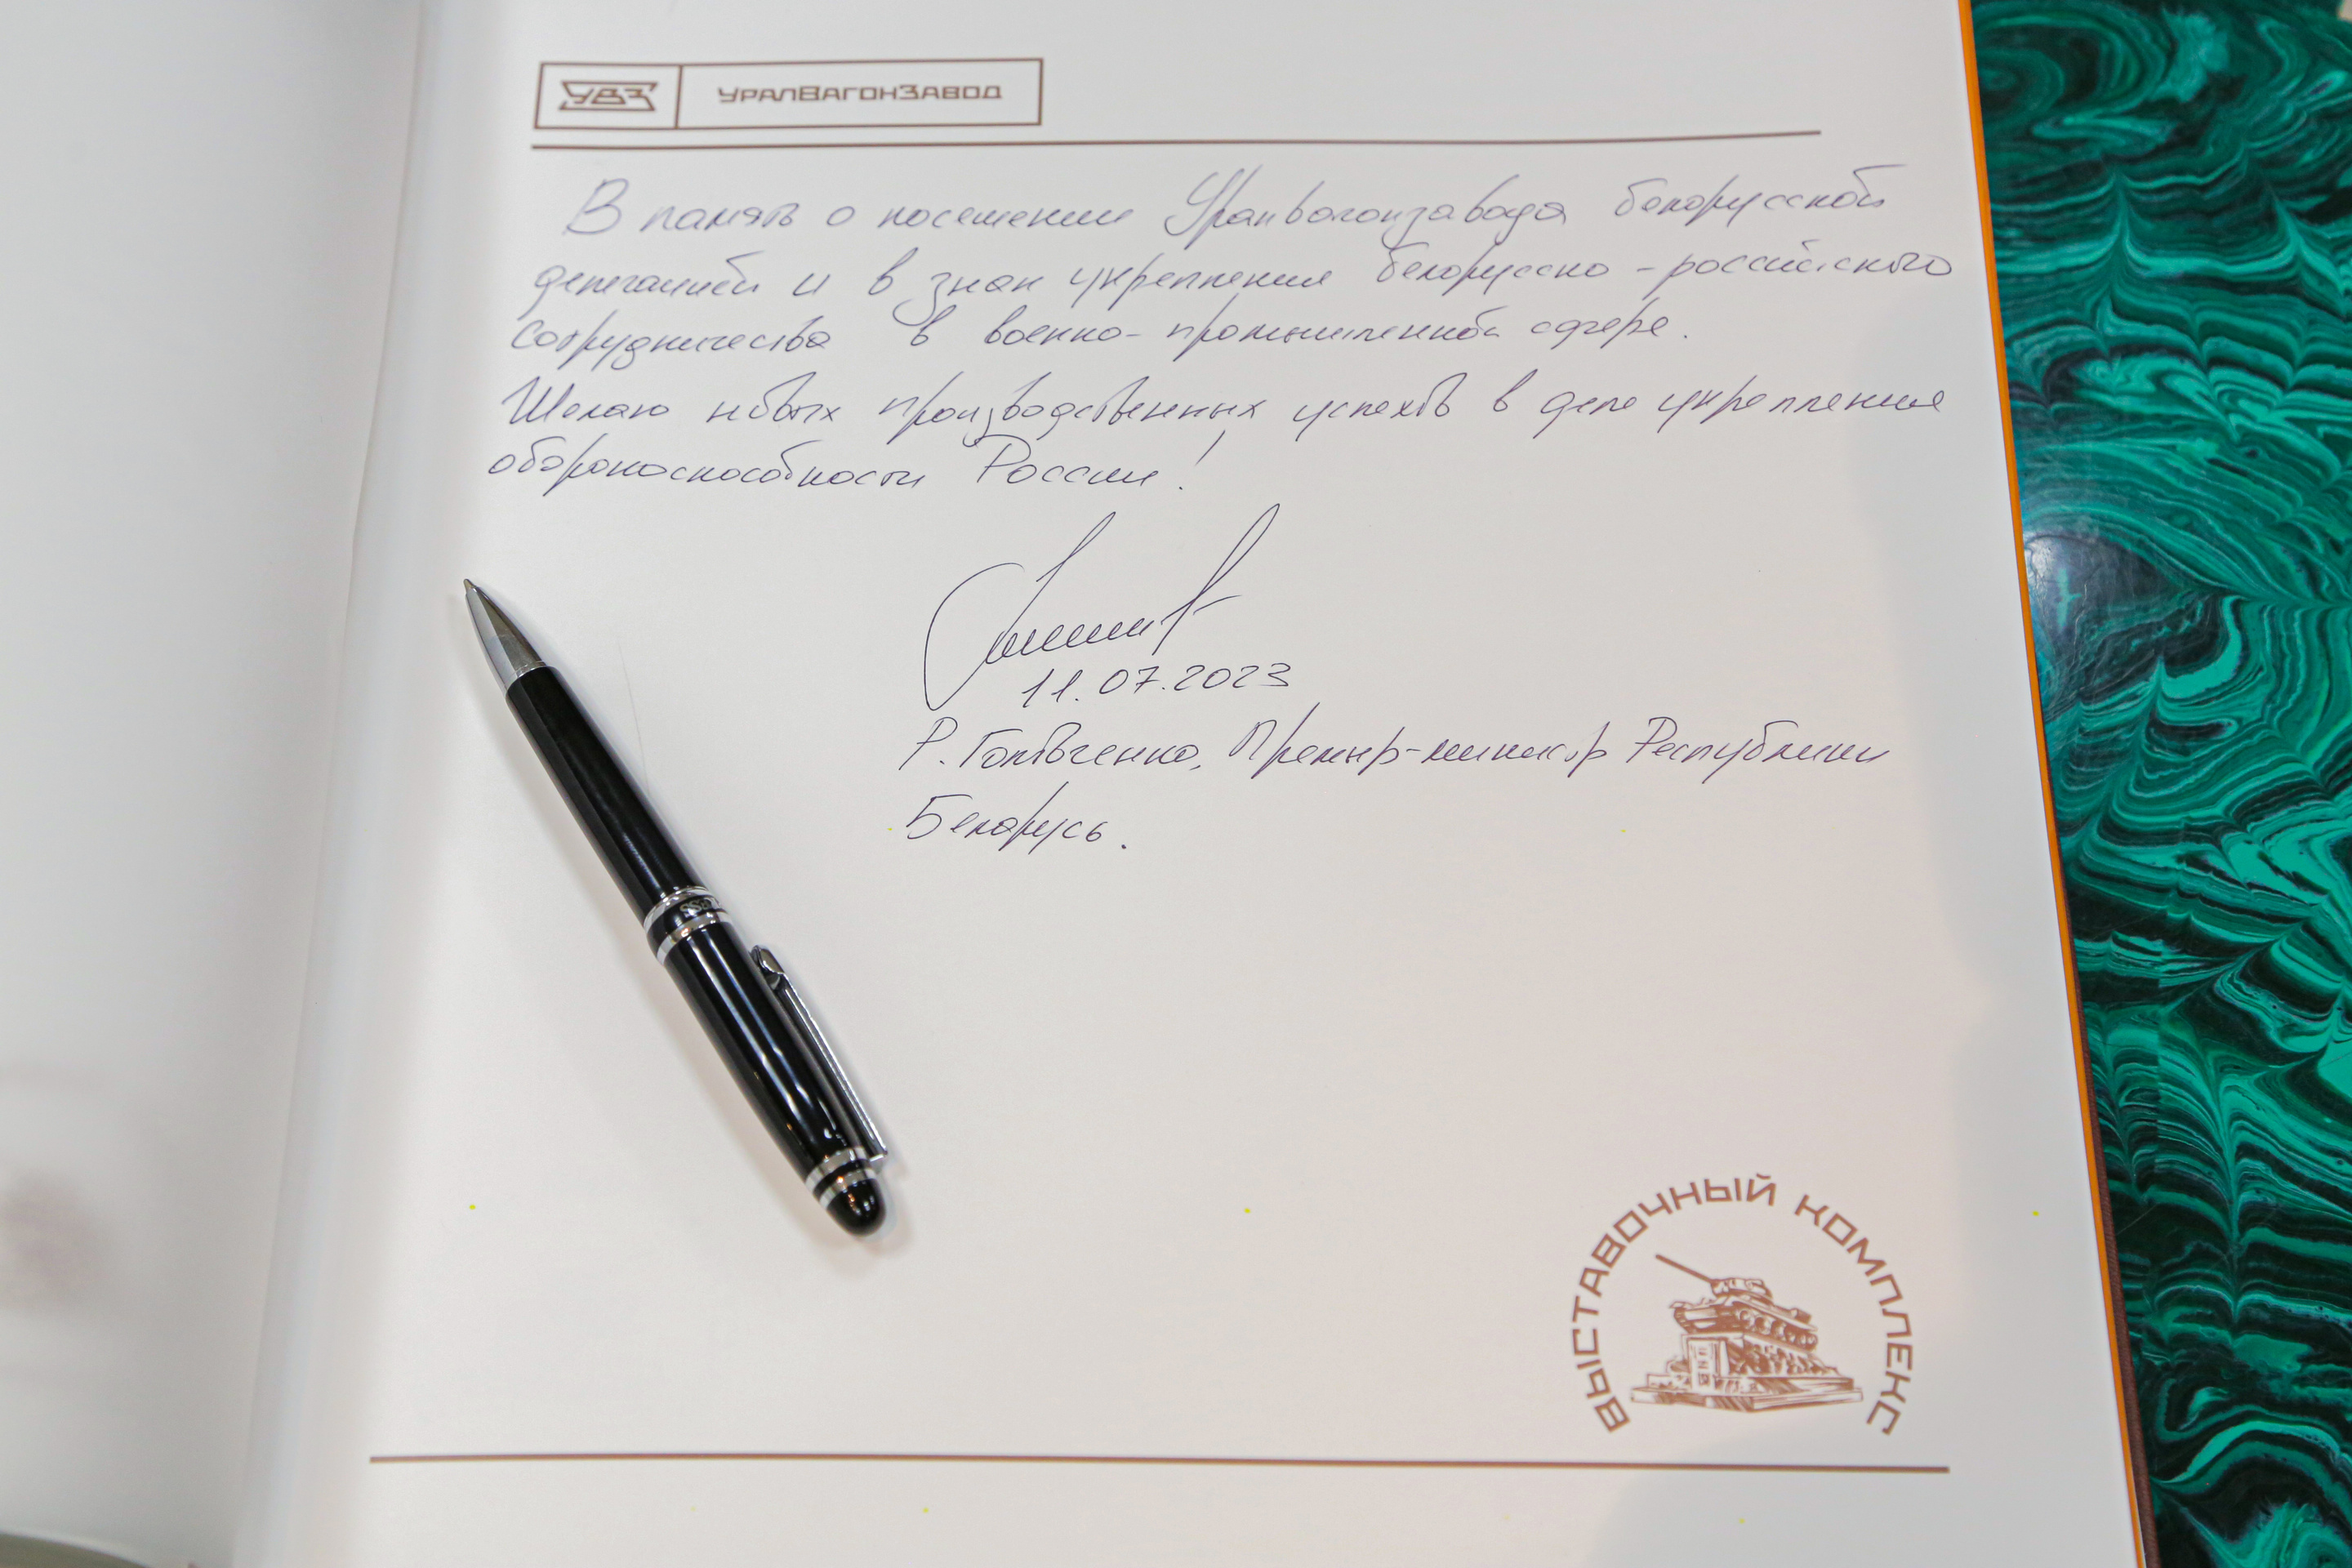 УВЗ УРАЛВАГОНЗАВОД
В память о посещении Уралвагонзавода белорусской
делегацией и в знак укрепления белорусско-российского
сотрудничества в военно-промышленной сфере.
Желаю новых производственных успехов в деле укрепления
обороноспособности России!
11.07.2023
Р. Головченко, Премьер-министр Республики
Беларусь.
ВЫСТАВОЧНЫЙ КОМПЛЕКС